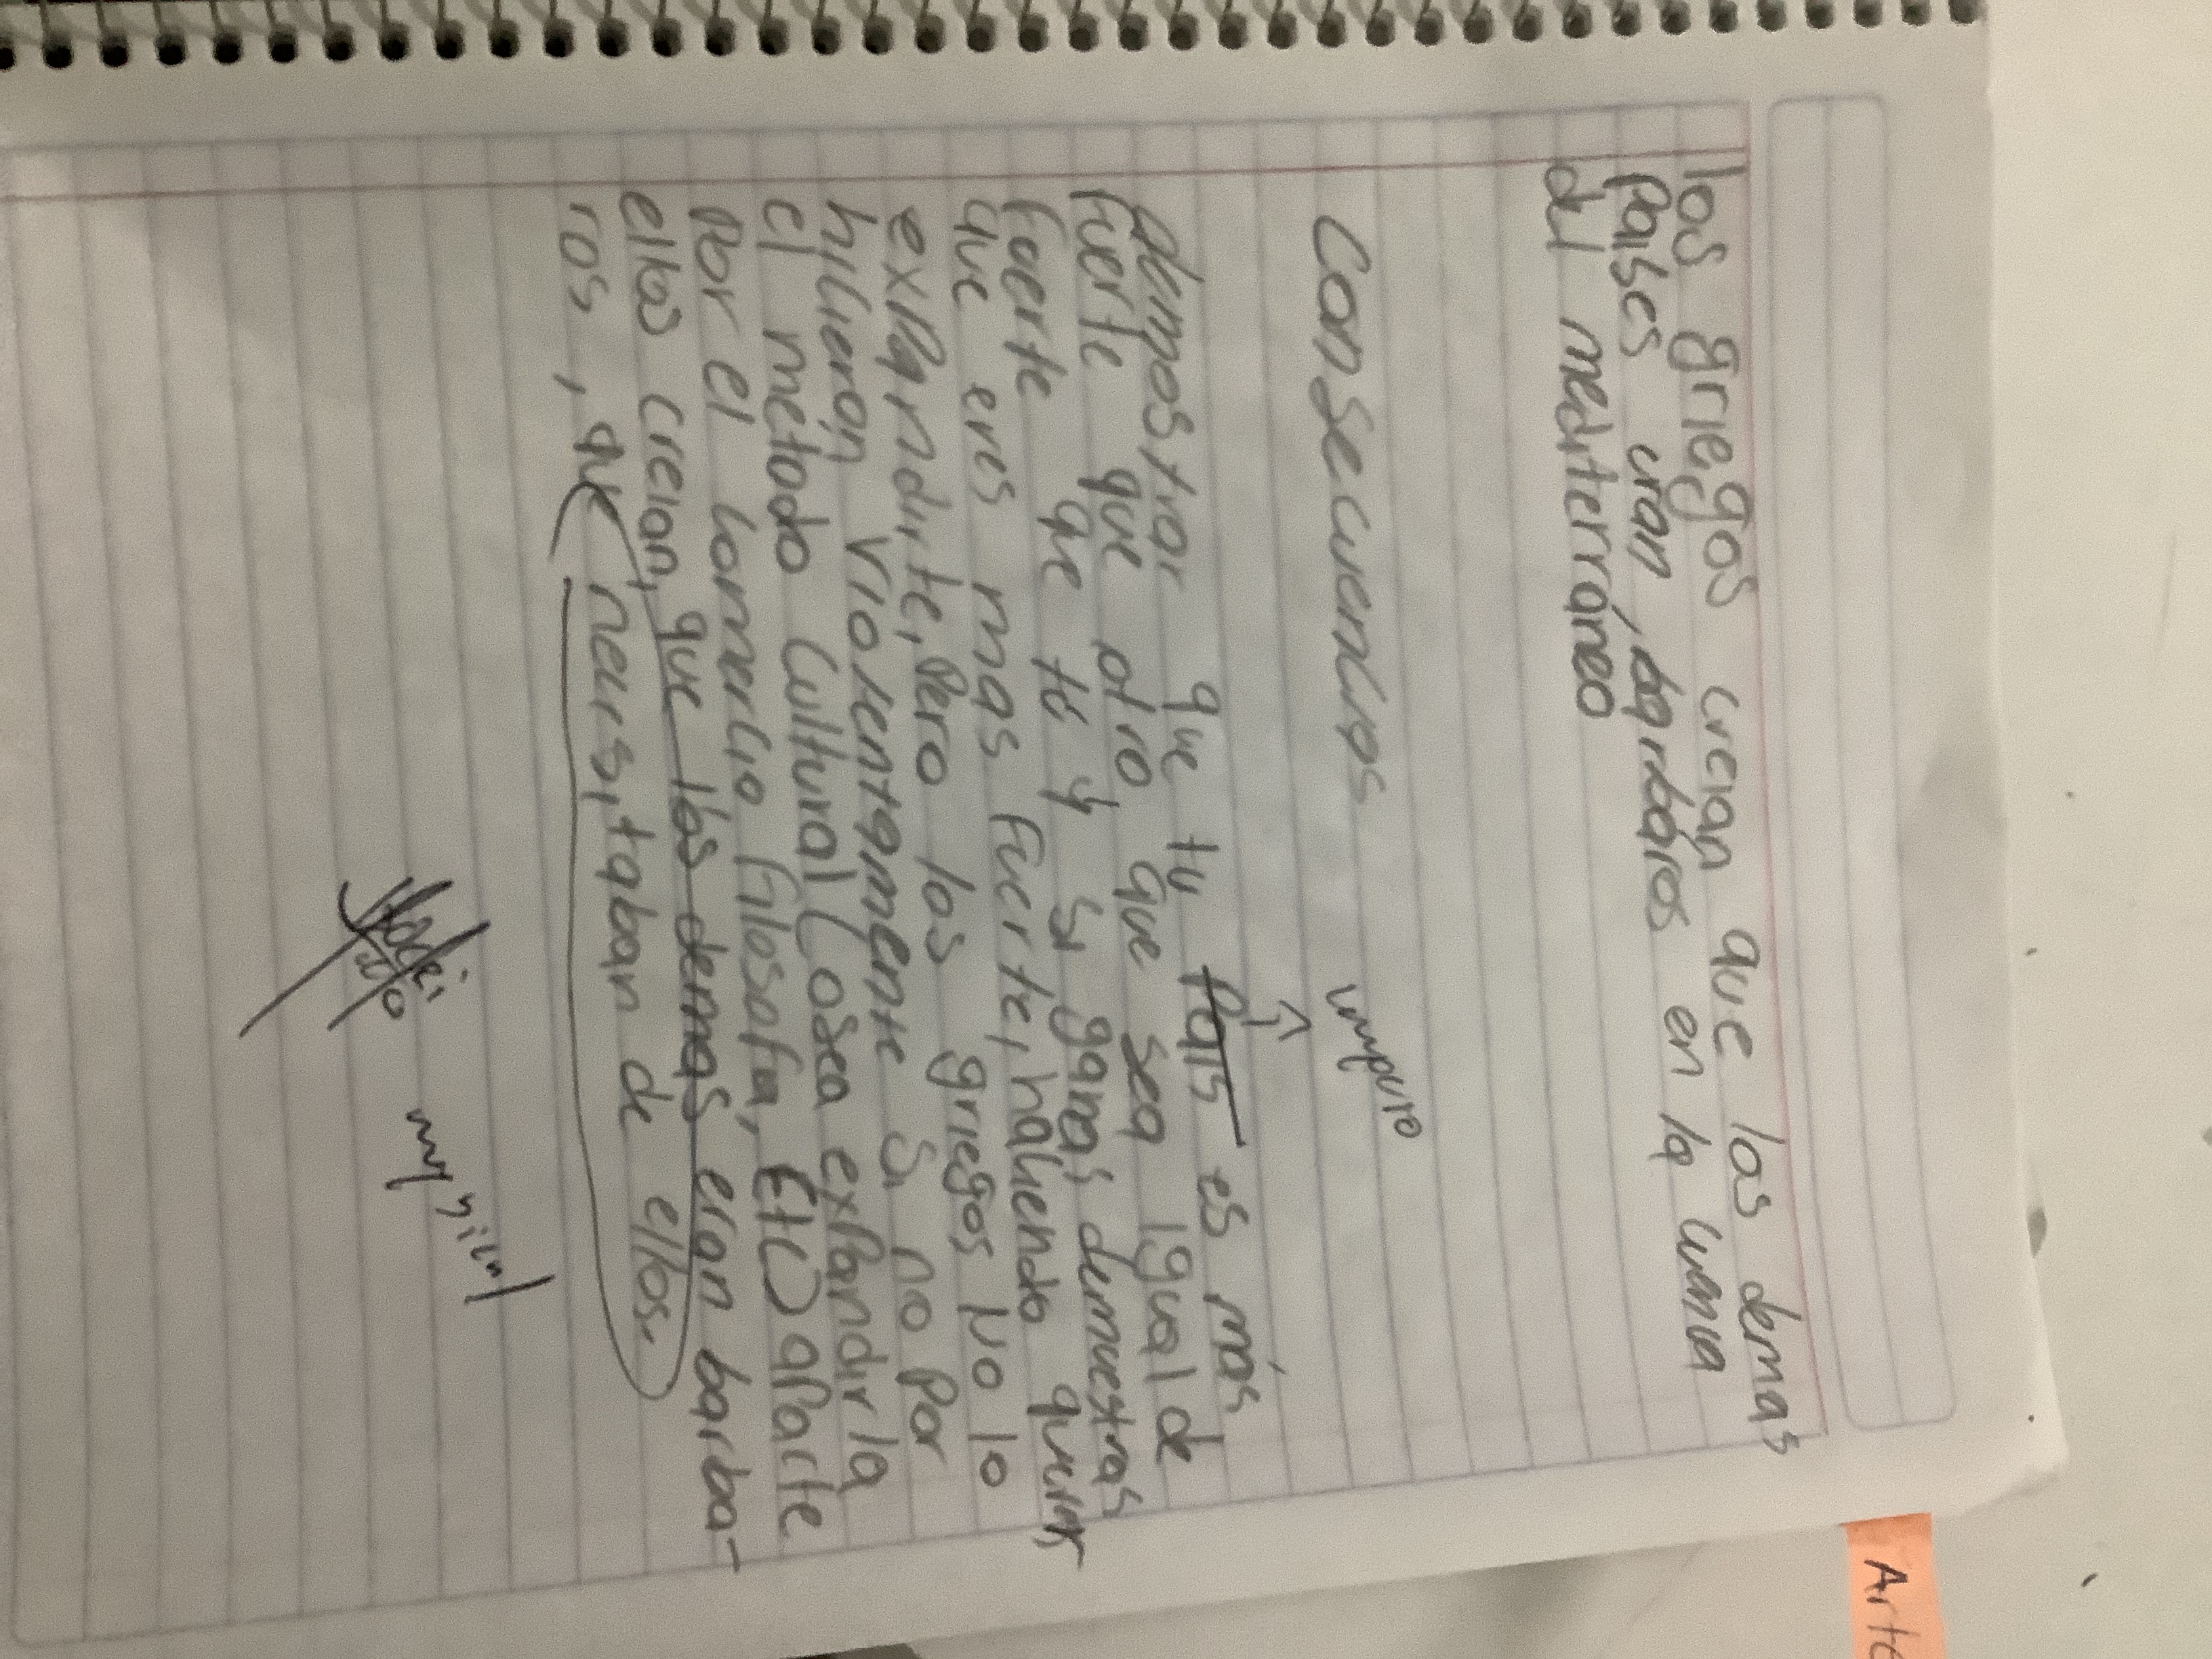 los griegos creian que los demas
paises eran barbaros en la cuenca
del mediterráneo
Consecuencias
imperio
demostrar que tu pais es más
fuerte que otro que sea igual de
fuerte que tú y si ganas demuestras
que eres mas fuerte, haciendo querer
expandirte, pero los griegos No lo
hicieron violentamente si no por
el metodo Cultural (osea expandirla
por el comercio, filosofia, Etc) aparte
ellos creian, que los demas eran barba-
ros, que necesitaban de ellos.
muy bien!
Arte